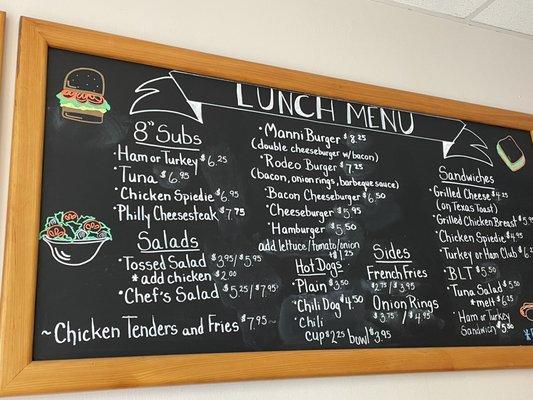 LUNCH MENU
8" Subs
Ham or Turkey $6.25
Tuna $6.95
Chicken Spiedie $6.95
Philly Cheesesteak $7.75
Salads
Tossed Salad $3.95/$5.95
*add chicken $2.00
Chef's Salad $5.25/$7.95
~Chicken Tenders and Fries $7.95
Manni Burger $8.25
(double cheeseburger w/bacon)
Rodeo Burger $7.25
(bacon, onion rings, barbeque sauce)
Bacon Cheeseburger $6.50
Cheeseburger $5.95
Hamburger $5.50
add lettuce/tomato/onion
$1.25
Hot Dogs
Plain $3.50
Chili Dog $4.50
Chili
cup $2.25 bowl $3.95
Sides
French Fries
$2.75/$3.95
Onion Rings
$3.75/$4.95
Sandwiches
Grilled Cheese $4.25
(on Texas Toast)
Grilled Chicken Breast $5.95
Chicken Spiedie $4.95
Turkey or Ham Club $6.2
BLT $5.50
Tuna Salad $5.50
*melt $6.25
Ham or Turkey
Sandwich $5.50